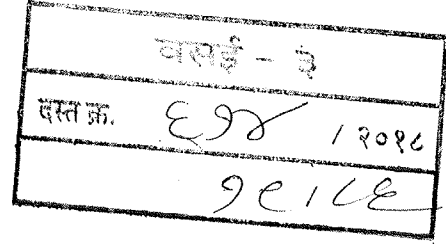 वसई - ३
दस्त क्र. ६१४ / २०१८
१९ / ८६